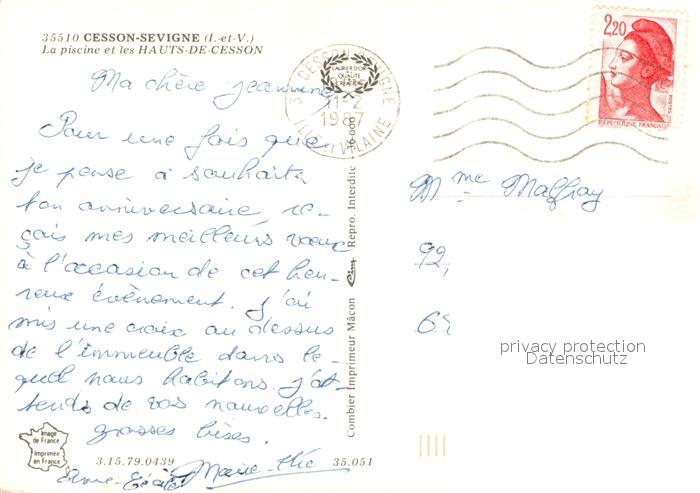 35510 CESSON-SEVIGNE (I.-et-V.)
La piscine et les HAUTS-DE-CESSON
Ma chère Jeannine
Pour une fois que
je pense à souhaiter
ton anniversaire, re-
çois mes meilleurs vœux
à l'occasion de cet heu-
reux évènement. J'ai
mis une croix au dessus
de l'immeuble dans le-
quel nous habitons. J'at-
tends de vos nouvelles.
grosses bises.
Anne-Cécile Marie-
Image
de France
Imprimée
en France
3.15.79.0439
35.051
Combier Imprimeur Mâcon Cim Repro. Interdite
35 CESSON SEVIGNE
LAURIER D'OR
QUALITE
11-2
1987
ILLE ET VILAINE
2,20
POSTES
REPUBLIQUE FRANÇAISE
Mme Malfray
92,
6
privacy protection
Datenschutz